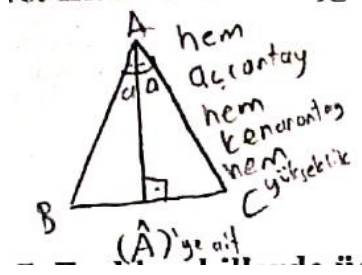 A
hem
açıortay
hem
kenarortay
hem
yükseklik
a a
B
C
(Â)'ye ait